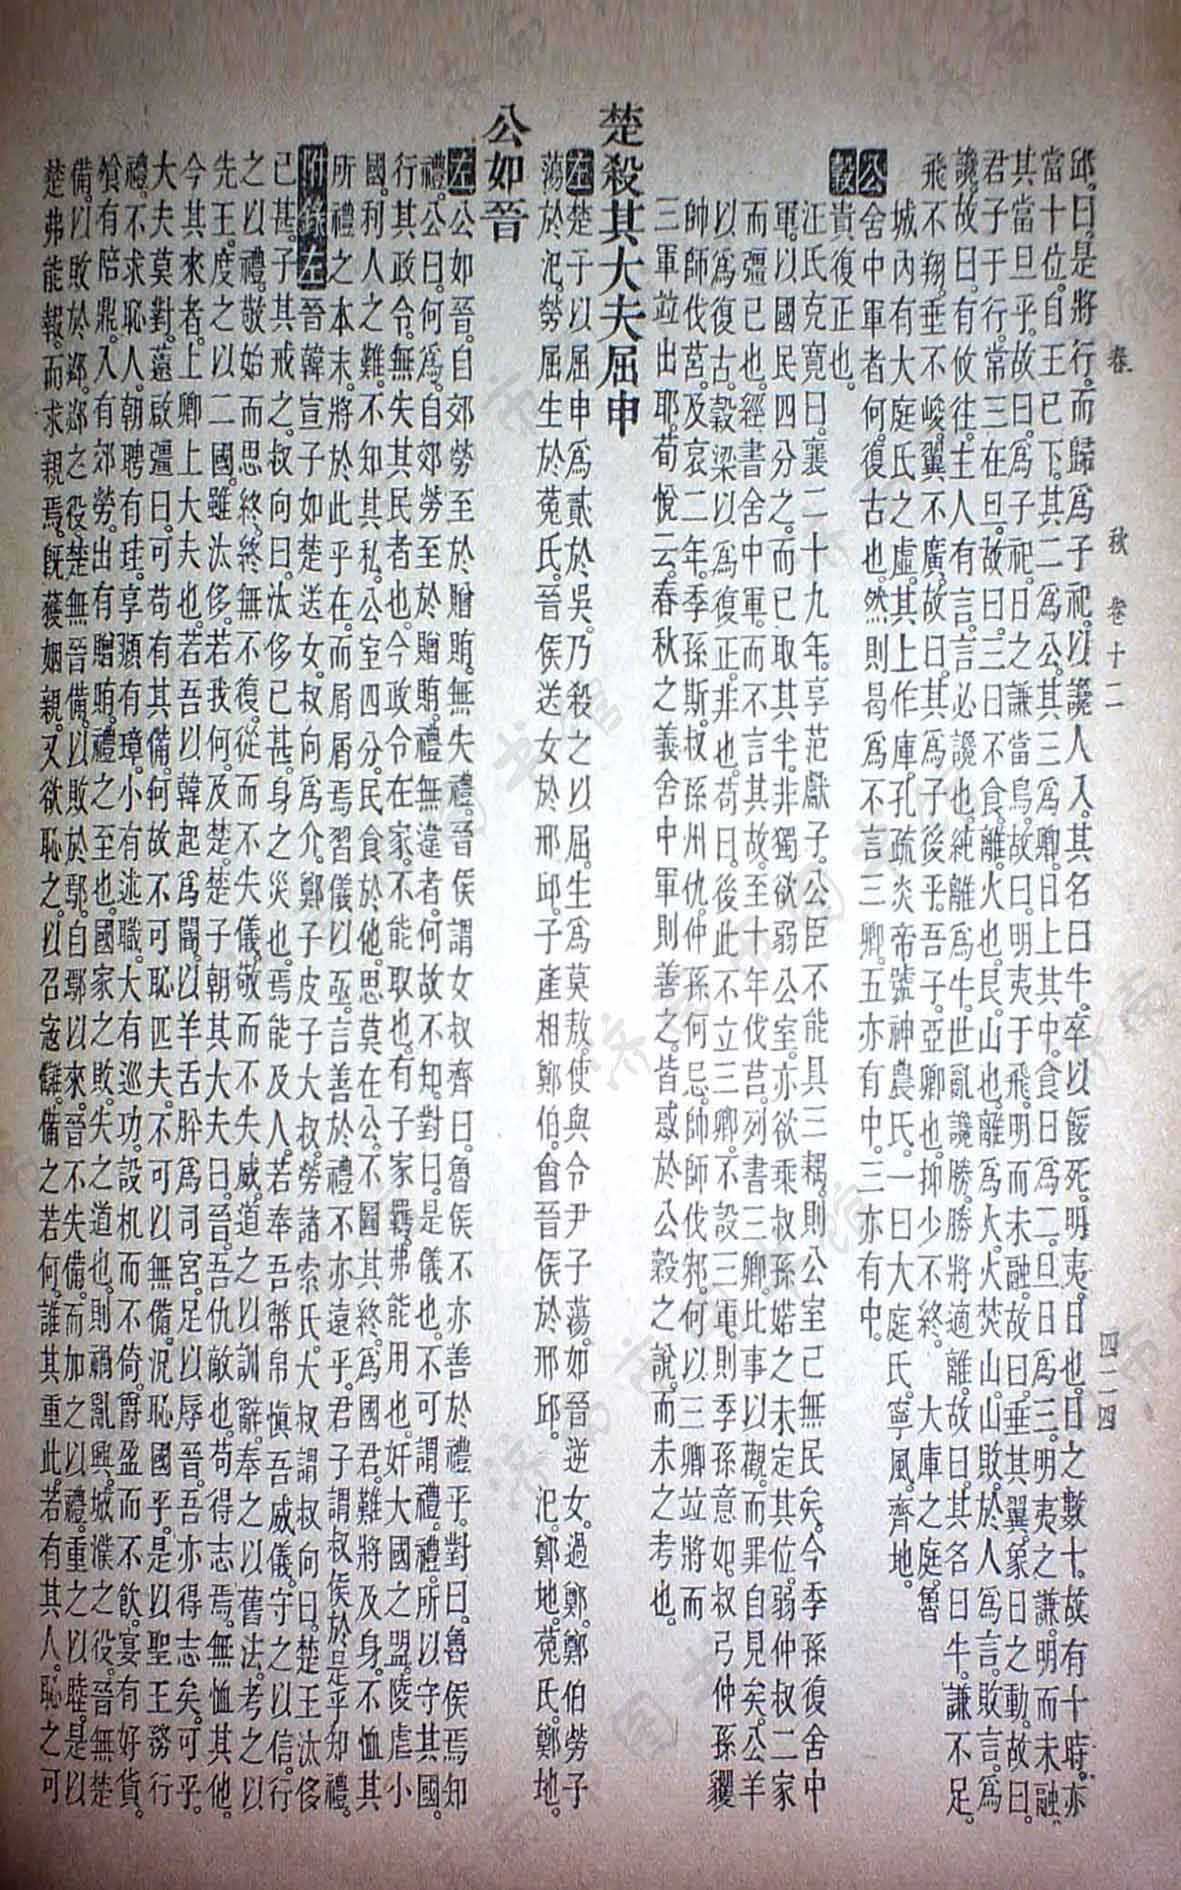 春秋 卷十二 四二四
邱。曰。是將行。而歸爲子祀。以讒人入。其名曰牛。卒以餒死。明夷。日也。日之數十。故有十時。亦
當十位。自王已下。其二爲公。其三爲卿。日上其中。食日爲二。旦日爲三。明夷之謙。明而未融。
其當旦乎。故曰。爲子祀。日之謙當鳥。故曰。明夷于飛。明而未融。故曰。垂其翼。象日之動。故曰。
君子于行。常三在旦。故曰。三日不食。離。火也。艮。山也。離爲火。火焚山。山敗。於人爲言。敗言。爲
讒。故曰。有攸往。主人有言。言必讒也。純離爲牛。世亂讒勝。勝將適離。故曰。其名曰牛。謙不足。
飛不翔。垂不峻。翼不廣。故曰。其爲子後乎。吾子。亞卿也。抑少不終。 大庫之庭。魯
城內有大庭氏之虛。其上作庫。孔疏炎帝號神農氏。一曰大庭氏。寧風。齊地。
公 舍中軍者何。復古也。然則曷爲不言三卿。五亦有中。三亦有中。
穀 貴復正也。
汪氏克寬曰。襄二十九年。享范獻子。公臣不能具三耦。則公室已無民矣。今季孫復舍中
軍。以國民四分之。而已取其半。非獨欲弱公室。亦欲乘叔孫婼之未定其位。弱仲叔二家
而彊已也。經書舍中軍。而不言其故。至十年伐莒。列書三卿。比事以觀。而罪自見矣。公羊
以爲復古。穀梁以爲復正。非也。苟曰。後此不立三卿。不設三軍。則季孫意如。叔弓仲孫貜
帥師伐莒。及哀二年。季孫斯。叔孫州仇。仲孫何忌。帥師伐邾。何以三卿竝將而
三軍竝出耶。荀悅云。春秋之義舍中軍則善之。皆惑於公穀之說。而未之考也。
楚殺其大夫屈申
左 楚子以屈申爲貳於吳。乃殺之以屈生爲莫敖。使與令尹子蕩。如晉逆女。過鄭。鄭伯勞子
蕩於氾。勞屈生於菟氏。晉侯送女於邢邱。子產相鄭伯。會晉侯於邢邱。 氾。鄭地。菟氏。鄭地。
公如晉
左 公如晉。自郊勞至於贈賄。無失禮。晉侯謂女叔齊曰。魯侯不亦善於禮乎。對曰。魯侯焉知
禮。公曰。何爲。自郊勞至於贈賄。禮無違者。何故不知。對曰。是儀也。不可謂禮。禮。所以守其國。
行其政令。無失其民者也。今政令在家。不能取也。有子家羈。弗能用也。奸大國之盟。陵虐小
國。利人之難。不知其私。公室四分。民食於他。思莫在公。不圖其終。爲國君。難將及身。不恤其
所。禮之本末。將於此乎在。而屑屑焉習儀以亟。言善於禮。不亦遠乎。君子謂叔侯於是乎知禮。
附錄左 晉韓宣子如楚送女。叔向爲介。鄭子皮子大叔。勞諸索氏。大叔謂叔向曰。楚王汰侈
已甚。子其戒之。叔向曰。汰侈已甚。身之災也。焉能及人。若奉吾幣帛。愼吾威儀。守之以信。行
之以禮。敬始而思終。終無不復。從而不失儀。敬而不失威。道之以訓辭。奉之以舊法。考之以
先王。度之以二國。雖汰侈。若我何。及楚。楚子朝其大夫曰。晉。吾仇敵也。苟得志焉。無恤其他。
今其來者。上卿上大夫也。若吾以韓起爲閽。以羊舌肸爲司宮。足以辱晉。吾亦得志矣。可乎。
大夫莫對。薳啟彊曰。可。苟有其備。何故不可。恥匹夫。不可以無備。況恥國乎。是以聖王務行
禮。不求恥人。朝聘有珪。享頫有璋。小有述職。大有巡功。設机而不倚。爵盈而不飲。宴有好貨。
飧有陪鼎。入有郊勞。出有贈賄。禮之至也。國家之敗。失之道也。則禍亂興。城濮之役。晉無楚
備。以敗於邲。邲之役。楚無晉備。以敗於鄢。自鄢以來。晉不失備。而加之以禮。重之以睦。是以
楚弗能報。而求親焉。旣獲姻親。又欲恥之。以召寇讎。備之若何。誰其重此。若有其人。恥之可